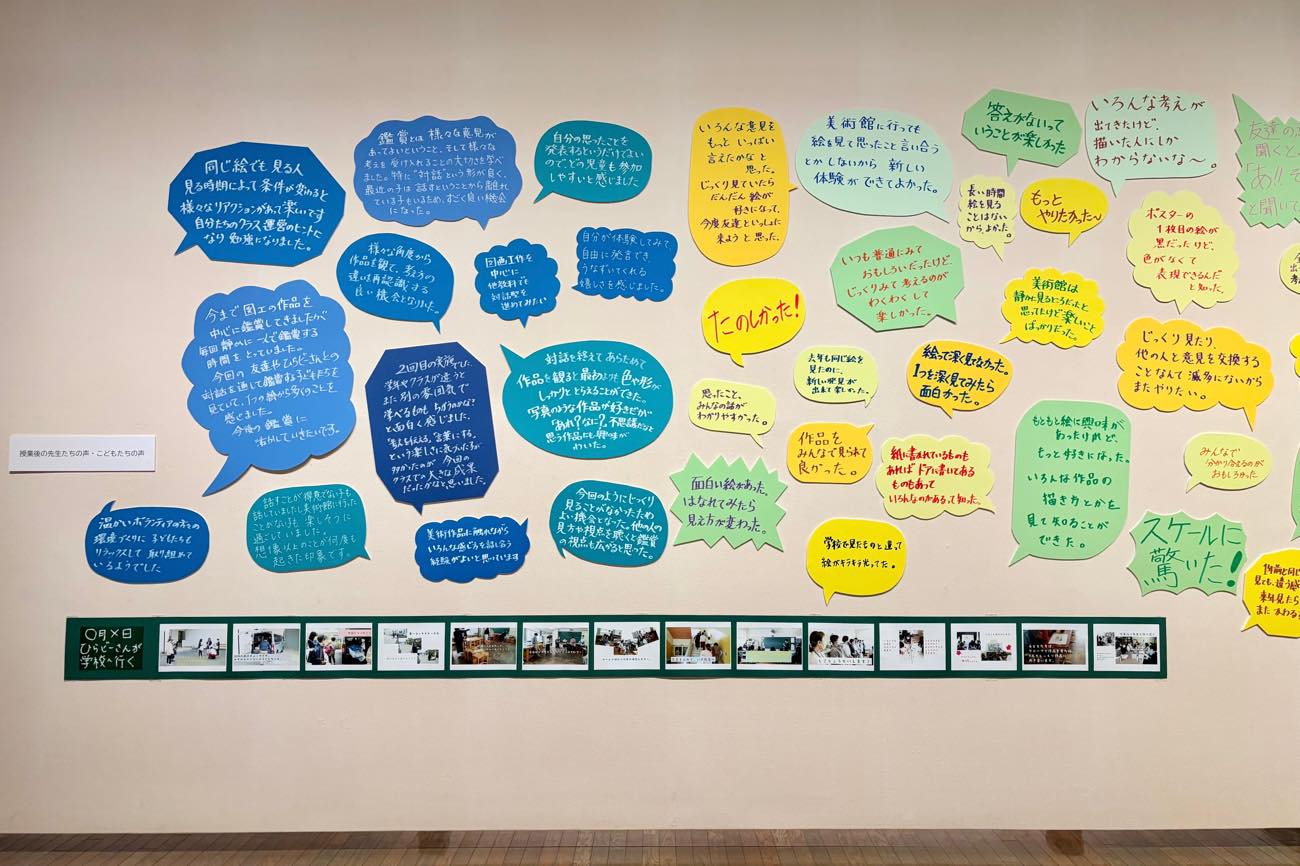 授業後の先生たちの声・こどもたちの声
同じ絵でも見る人
見る時期によって条件が変わると
様々なリアクションがあって楽しいです
自分たちのクラス運営のヒントに
なり勉強になりました。
鑑賞とは様々な意見が
あってよいということ、そして様々な
考えを受け入れることの大切さを学べ
ました。特に"対話"という形が良く、
最近の子は話すということから離れ
ている子もいるため、すごく良い機会
になった。
自分の思ったことを
発表するというだけでよい
ので、どの児童も参加
しやすいと感じました
様々な角度から
作品を観て、考え方の
違いを再認識する
良い機会となりました。
図画工作を
中心に
他教科でも
対話型を
進めてみたい
自分が体験してみて、
自由に発言でき、
うなずいてくれる
嬉しさを感じました。
今まで図工の作品を
中心に鑑賞してきましたが
毎回静かに一人で鑑賞する
時間をとっていました。
今回の友達やひらどーさんとの
対話を通して鑑賞する子どもたちを
見ていて、1つの絵から多くのことを
感じました。
今後の鑑賞に
活かしていきたいです。
2回目の実施でした。
学級やクラスが違うと
また別の雰囲気で
学べるものもちがうのかな?
と面白く感じました。
という楽しさに気づいた方が
多かったのが今回の
クラスでの大きな成果
だったかなと思いました。
対話を終えてあらためて
作品を観ると最初よりも色や形が
しっかりととらえることができた。
写真のような作品が好きだが
"あれ?なに?"不思議だなと
思う作品にも興味が
わいた。
温かいボランティアの方々の
環境づくりに子どもたちも
リラックスして取り組めて
いるようでした
話すことが得意でない子も
話していましたし美術館に行った
ことがない子も楽しそうに
過ごしていました。
想像以上のことが何度も
起きた印象です。
美術作品に触れながら
いろんな感じ方を話し合う
経験がよいと思っています
今回のようにじっくり
見ることがなかったため
よい機会となった。他の人の
見方や視点を聴くと鑑賞
の視点も広がると思った。
いろんな意見を
もっといっぱい
言えたかなと
思った。
じっくり見ていたら
だんだん絵が
好きになって、
今度友達といっしょに
来ようと思った。
美術館に行っても
絵を見て思ったこと言い合う
とかしないから新しい
体験ができてよかった。
答えがないって
いうことが楽しかった
いろんな考えが
出てきたけど、
描いた人にしか
わからないな〜。
友達の
聞くと
「あ!!そ
と聞いて
長い時間
絵を見る
ことはない
から、よかった。
もっと
やりたかった〜
ポスターの
1枚目の絵が
黒だったけど、
色がなくて
表現できるんだ
と知った。
たのしかった!
いつも普通にみて
おもしろいだったけど、
じっくりみて考えるのが
わくわくして
楽しかった。
美術館は
静かに見るとこだったと
思ってたけど楽しいこと
ばっかりだった。
じっくり見たり、
他の人と意見を交換する
ことなんて滅多にないから
またやりたい。
去年も同じ絵を
見たのに、
新しい発見が
出来て楽しかった。
絵って深く見なかった。
1つを深く見てみたら
面白かった。
思ったこと、
みんなの話が
わかりやすかった。
作品を
みんなで見られて
良かった。
紙に書かれているものも
あれば、ドアに書いてある
ものもあって
いろんなのがあるって知った。
もともと絵に興味が
あったけれど、
もっと好きになった。
いろんな作品の
描き方とかを
見て知ることが
できた。
みんなで
分かり合えるのが
おもしろかった。
面白い絵があった。
はなれてみたら
見え方が変わった。
学校で見たものと違って
絵がキラキラ光ってた。
スケールに
驚いた!
1年前と同じ
見ても、違う感
来年見たら
またかわる
〇月×日
ひらどーさんが
学校へ行く